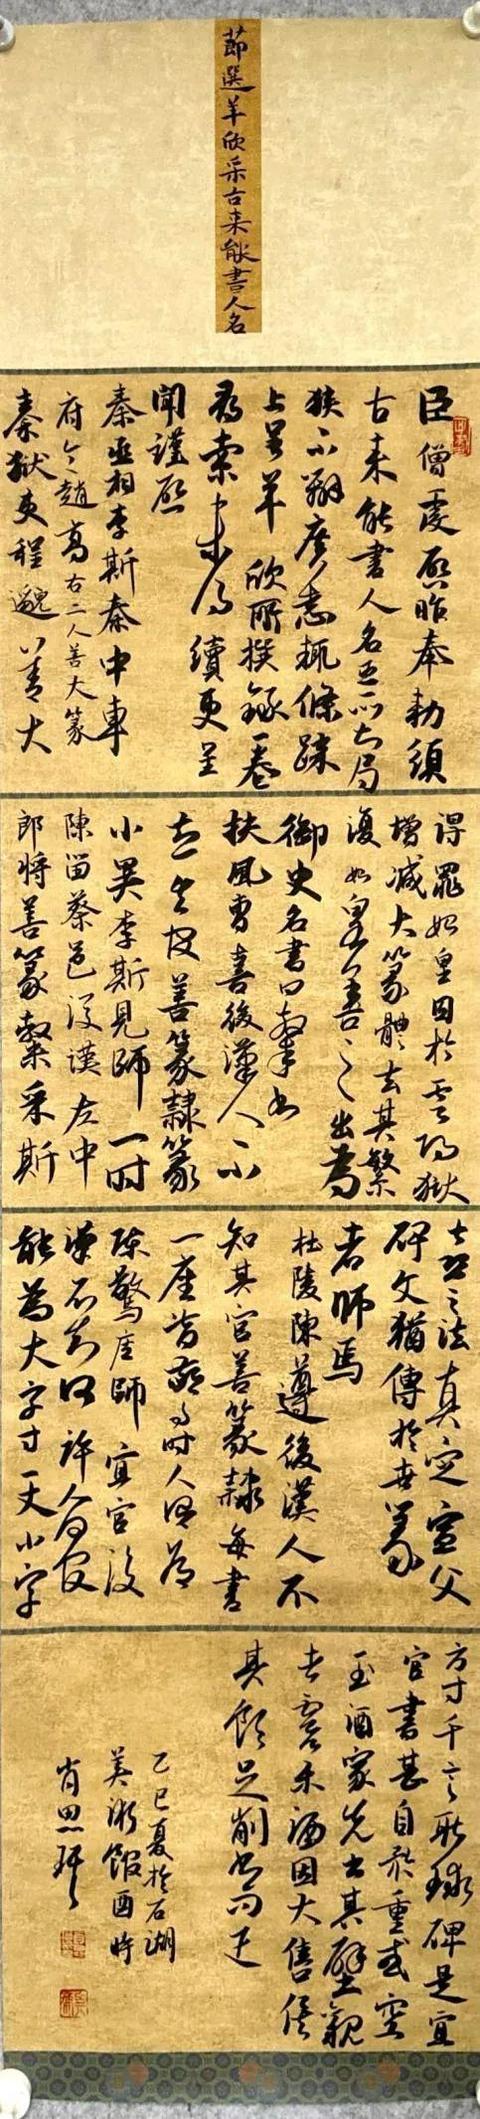 節選羊欣采古来能書人名
臣僧虔啓昨奉勅須
古来能書人名臣所知局
狹不辨廣悉輒條疎
上呈羊欣所撰録一卷
尋索未得續更呈
聞謹啓
秦丞相李斯秦中車
府令趙高右二人善大篆
秦獄吏程邈善大
得罪始皇囚於雲陽獄
增减大篆體去其繁
復始皇善之出為
御史名書曰隸書
扶風曹喜後漢人不
知其官善篆隸篆
小異李斯見師一時
陳留蔡邕後漢左中
郎將善篆采斯
喜之法真定宣父
碑文猶傳於世篆
者師焉
杜陵陳遵後漢人不
知其官善篆隸每書
一座皆驚時人謂為
陳驚座師宜官後
漢不知何許人何官
能為大字方一丈小字
方寸千言耿球碑是宜
官書甚自矜重或空
至酒家先書其壁觀
者雲集酒因大售俟
其飲足削書而退
乙巳夏於石湖
美術館西時
肖思